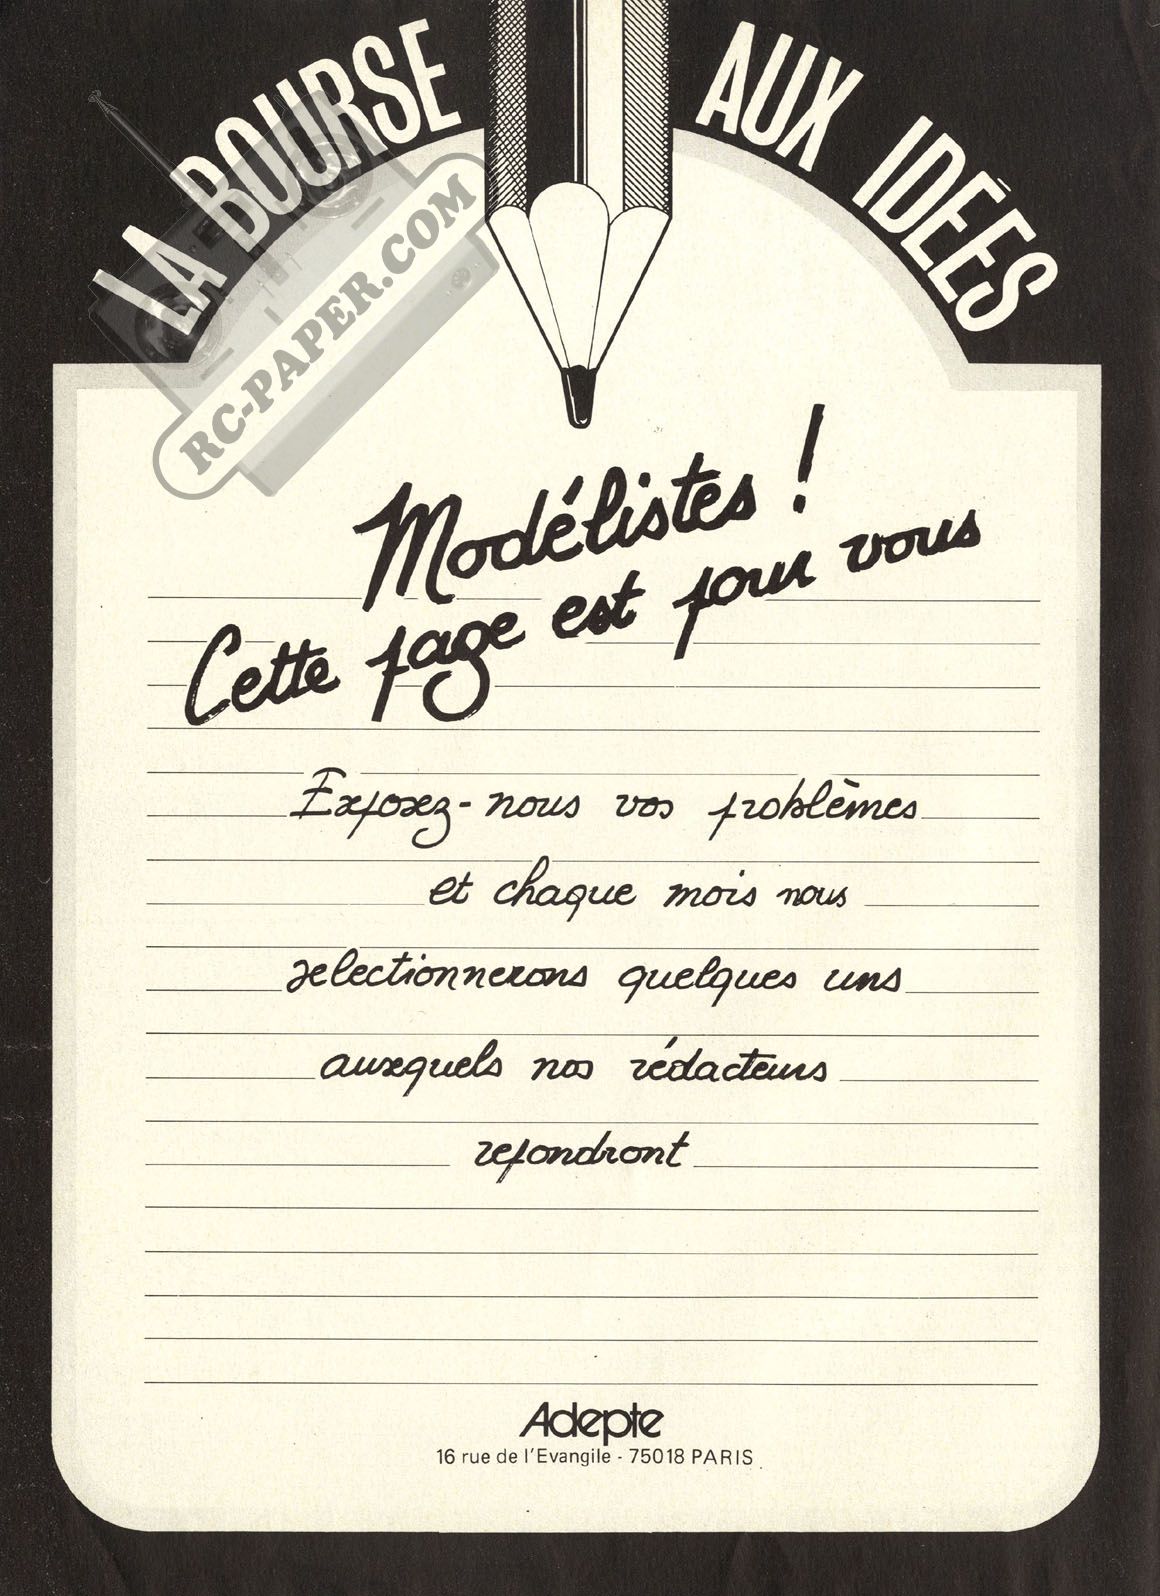 LA BOURSE AUX IDÉES
RC-PAPER.COM
Modélistes !
Cette page est pour vous
Exposez-nous vos problèmes
et chaque mois nous
selectionnerons quelques uns
auxquels nos rédacteurs
repondront
Adepte
16 rue de l'Evangile - 75018 PARIS